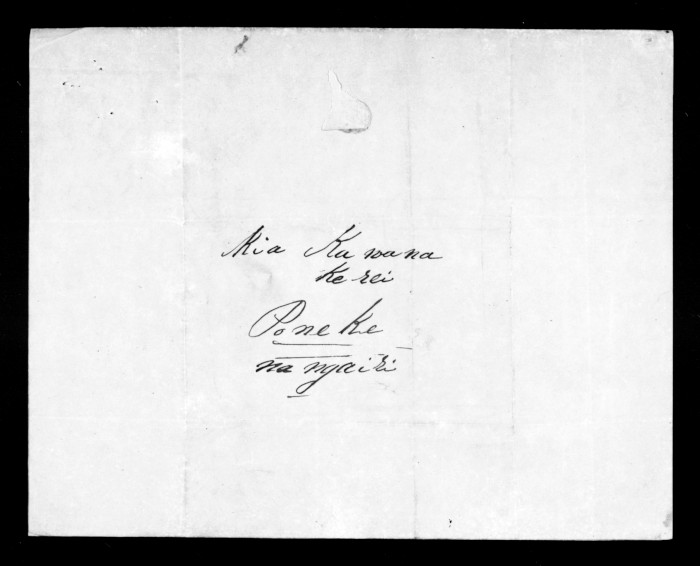 Kia Kawana
Kerei
Poneke
na ngairi